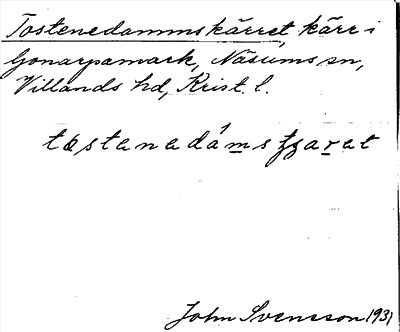 Tostenedammskärret, kärr i
Gonarpamark, Näsums sn,
Villands hd, Krist. l.
John Svensson 1931